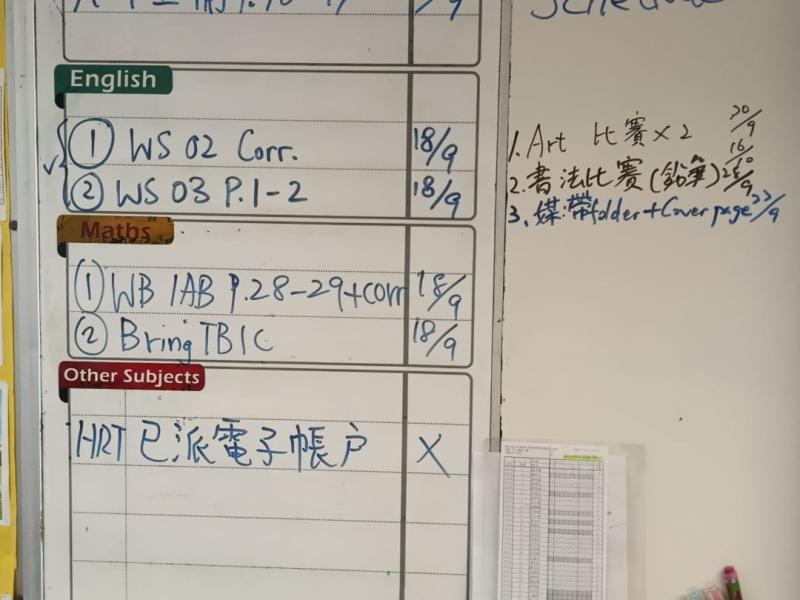 English
① WS 02 Corr. 18/9
② WS 03 P.1-2 18/9
Maths
① WB 1AB P.28-29+corr 18/9
② Bring TB1C 18/9
Other Subjects
HRT 已派電子帳户 X
1. Art 比賽 x 2 20/9
16/
2. 書法比賽(鉛筆) /9
3. 媒:帶folder+Cover page 22/9